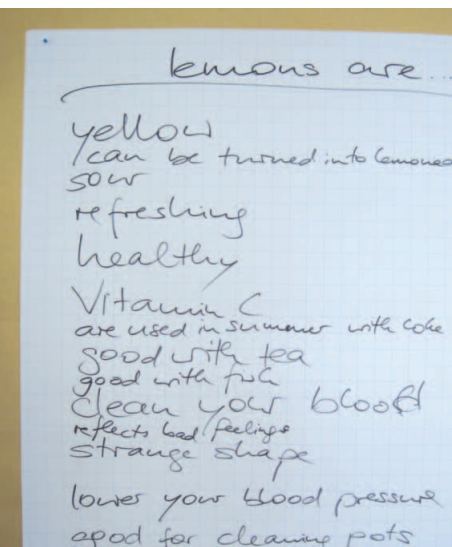 lemons are...
yellow
can be turned into lemonad
sour
refreshing
healthy
Vitamin C
are used in summer with coke
good with tea
good with fish
clean your blood
reflects bad feelings
strange shape
lower your blood pressure
good for cleaning pots